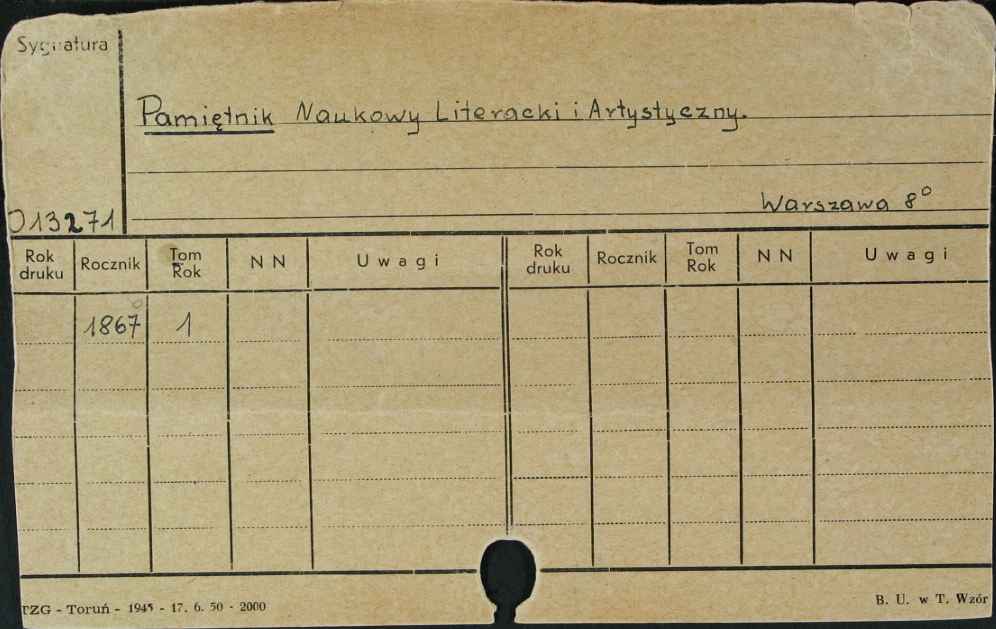 Sygnatura
Pamiętnik Naukowy Literacki i Artystyczny.
Warszawa 8°
013271
Rok druku Rocznik Tom Rok N N Uwagi Rok druku Rocznik Tom Rok N N Uwagi
1867 1
TZG - Toruń - 1945 - 17. 6. 50 - 2000
B. U. w T. Wzór